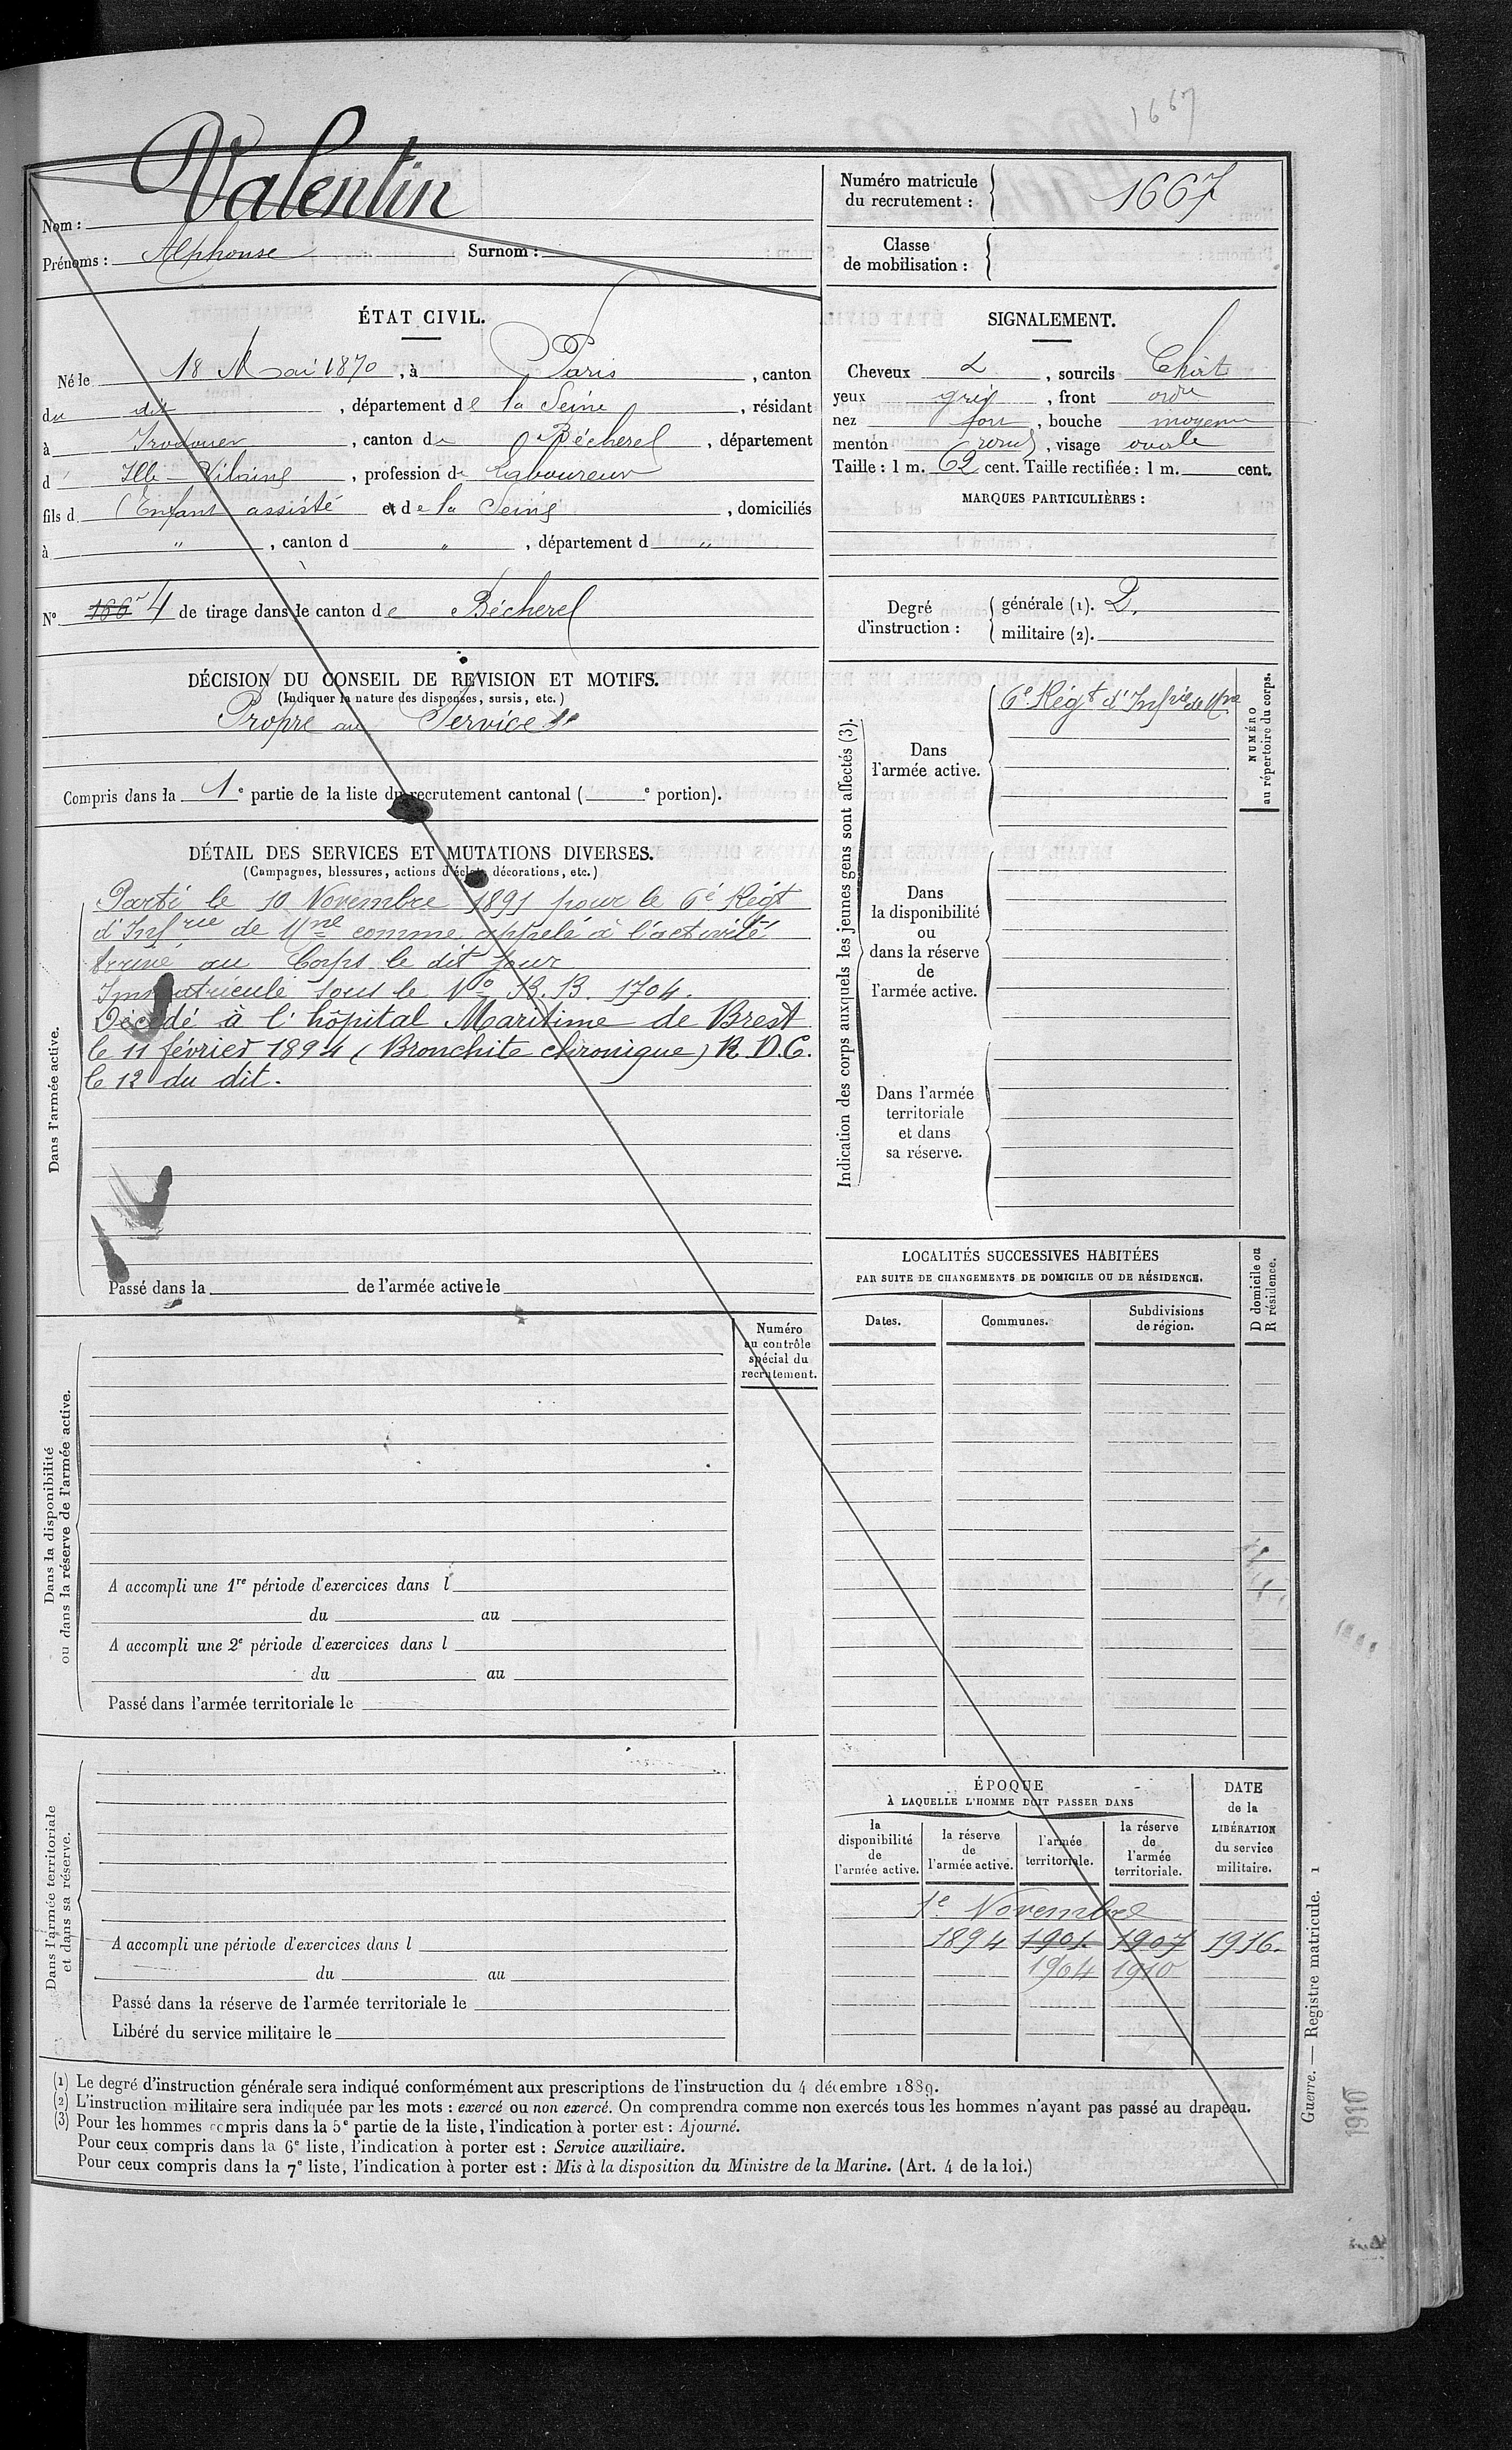 1667
Nom : Valentin
Prénoms : Alphonse Surnom :
Numéro matricule
du recrutement : 1667
Classe
de mobilisation :
ÉTAT CIVIL.
Né le 18 Mai 1870, à Paris, canton
du dit, département de la Seine, résidant
à Irodouer, canton de Bécherel, département
d' Ille-Vilaine, profession de Laboureur
fils d Enfant assisté et de la Seine, domiciliés
à ", canton d ", département d "
N° 166 4 de tirage dans le canton de Bécherel
SIGNALEMENT.
Cheveux , sourcils Chat
yeux gris, front ordre
nez fort, bouche moyenne
menton rond, visage ovale
Taille : 1 m. 62 cent. Taille rectifiée : 1 m. cent.
MARQUES PARTICULIÈRES :
Degré
d'instruction :
générale (1). 2.
militaire (2).
DÉCISION DU CONSEIL DE REVISION ET MOTIFS.
(Indiquer la nature des dispenses, sursis, etc.)
Propre au Service
Compris dans la 1e partie de la liste du recrutement cantonal ( e portion).
DÉTAIL DES SERVICES ET MUTATIONS DIVERSES.
(Campagnes, blessures, actions d'éclat, décorations, etc.)
Dans l'armée active.
Parti le 10 Novembre 1891 pour le 6e Régt
d'Infrie de Mne comme appelé à l'activité
Arrivé au Corps le dit jour
Immatriculé sous le No B.B. 1704.
Décédé à l'hôpital Maritime de Brest
le 11 février 1894 (Bronchite chronique) R.D.C.
le 12 du dit.
Passé dans la de l'armée active le
Indication des corps auxquels les jeunes gens sont affectés (3).
Dans
l'armée active.
6e Régt d'Infrie de Mne
NUMÉRO
au répertoire du corps.
Dans
la disponibilité
ou
dans la réserve
de
l'armée active.
Dans l'armée
territoriale
et dans
sa réserve.
Dans la disponibilité
ou dans la réserve de l'armée active.
Numéro
au contrôle
spécial du
recrutement.
A accompli une 1re période d'exercices dans l
du au
A accompli une 2e période d'exercices dans l
du au
Passé dans l'armée territoriale le
LOCALITÉS SUCCESSIVES HABITÉES
PAR SUITE DE CHANGEMENTS DE DOMICILE OU DE RÉSIDENCE.
D domicile ou
R résidence.
Dates. Communes. Subdivisions
de région.
Dans l'armée territoriale
et dans sa réserve.
A accompli une période d'exercices dans l
du au
Passé dans la réserve de l'armée territoriale le
Libéré du service militaire le
ÉPOQUE
À LAQUELLE L'HOMME DOIT PASSER DANS
la
disponibilité
de
l'armée active.
la réserve
de
l'armée active.
l'armée
territoriale.
la réserve
de
l'armée
territoriale.
DATE
de la
LIBÉRATION
du service
militaire.
1e Novembre
1894 1901 1907 1916.
1904 1910
(1) Le degré d'instruction générale sera indiqué conformément aux prescriptions de l'instruction du 4 décembre 1889.
(2) L'instruction militaire sera indiquée par les mots : exercé ou non exercé. On comprendra comme non exercés tous les hommes n'ayant pas passé au drapeau.
(3) Pour les hommes compris dans la 5e partie de la liste, l'indication à porter est : Ajourné.
Pour ceux compris dans la 6e liste, l'indication à porter est : Service auxiliaire.
Pour ceux compris dans la 7e liste, l'indication à porter est : Mis à la disposition du Ministre de la Marine. (Art. 4 de la loi.)
Guerre. — Registre matricule. 1
1910